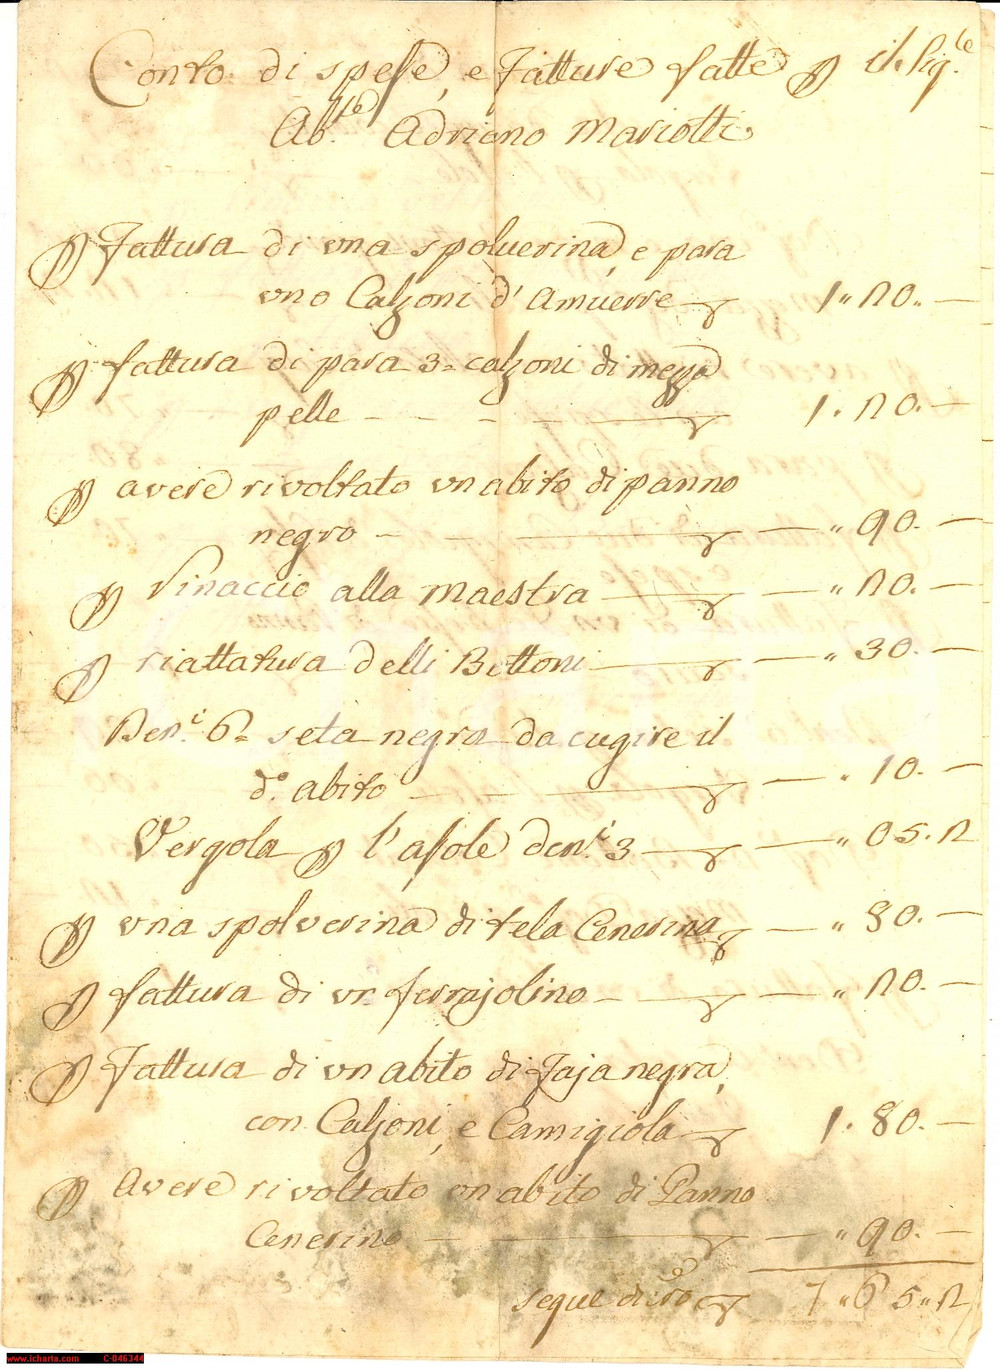 Conto di spese, e Fatture fatte p il Sig.le
Ab.te Adriano Mariotti
p Fattura di una spolverina, e para
uno Calzoni d'Amuerre 1„20„—
p fattura di para 3= calzoni di mezza
pelle 1.20.—
p avere rivoltato un abito di panno
negro —„90.—
p Vinaccio alla Maestra —„20.—
p riattatura delli Bottoni —„30.—
Den.i 6= seta negra da cugire il
d.o abito —„10.—
Vergola p l'asole den.i 3 —„05.2
p una spolverina di tela Cenerina —„80.—
p fattura di un ferrajolino —„20.—
p Fattura di un abito di Saja negra,
con Calzoni, e Camigiola 1.80.—
p Avere rivoltato un abito di Panno
Cenerino —„90.—
segue di 7„65„2
www.icharta.com C-046344